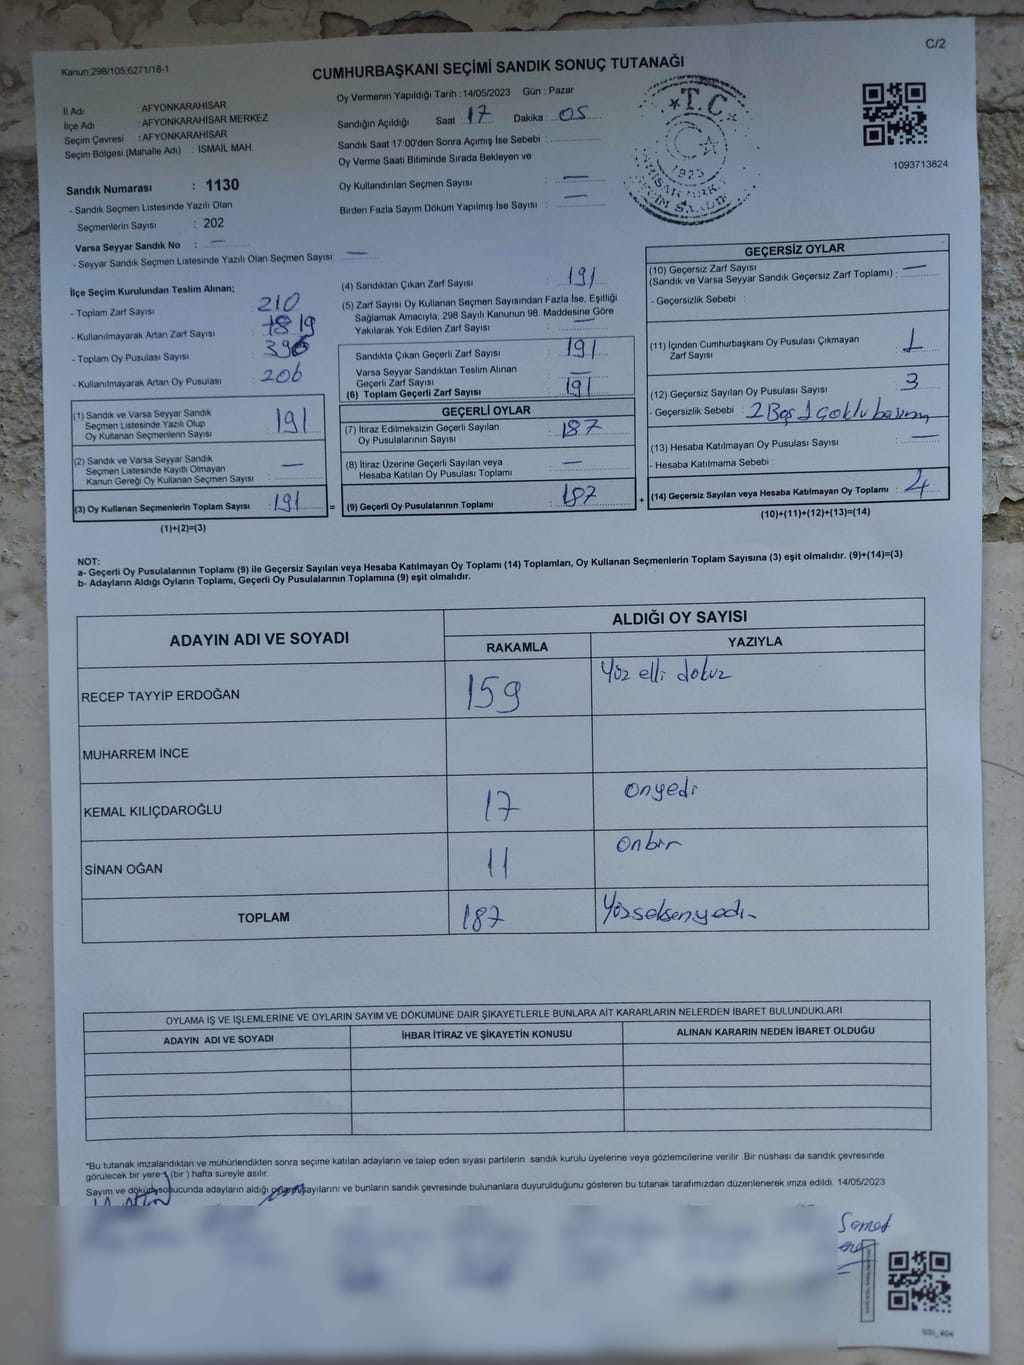 C/2
Kanun:298/105;6271/18-1
CUMHURBAŞKANI SEÇİMİ SANDIK SONUÇ TUTANAĞI
Oy Vermenin Yapıldığı Tarih : 14/05/2023 Gün : Pazar
İl Adı : AFYONKARAHİSAR
İlçe Adı : AFYONKARAHİSAR MERKEZ
Seçim Çevresi : AFYONKARAHİSAR
Seçim Bölgesi (Mahalle Adı) : İSMAİL MAH.
Sandığın Açıldığı Saat : 17 Dakika : 05
Sandık Saat 17:00'den Sonra Açımış İse Sebebi :
Oy Verme Saati Bitiminde Sırada Bekleyen ve
Oy Kullandırılan Seçmen Sayısı : —
Birden Fazla Sayım Döküm Yapılmış İse Sayısı : —
T.C.
1923
1093713824
Sandık Numarası : 1130
- Sandık Seçmen Listesinde Yazılı Olan
Seçmenlerin Sayısı : 202
Varsa Seyyar Sandık No : —
- Seyyar Sandık Seçmen Listesinde Yazılı Olan Seçmen Sayısı: —
İlçe Seçim Kurulundan Teslim Alınan;
- Toplam Zarf Sayısı : 210
- Kullanılmayarak Artan Zarf Sayısı : 19
- Toplam Oy Pusulası Sayısı : 396
- Kullanılmayarak Artan Oy Pusulası : 206
(1) Sandık ve Varsa Seyyar Sandık
Seçmen Listesinde Yazılı Olup
Oy Kullanan Seçmenlerin Sayısı : 191
(2) Sandık ve Varsa Seyyar Sandık
Seçmen Listesinde Kayıtlı Olmayan
Kanun Gereği Oy Kullanan Seçmen Sayısı : —
(3) Oy Kullanan Seçmenlerin Toplam Sayısı : 191 =
(1)+(2)=(3)
(4) Sandıktan Çıkan Zarf Sayısı : 191
(5) Zarf Sayısı Oy Kullanan Seçmen Sayısından Fazla İse, Eşitliği
Sağlamak Amacıyla, 298 Sayılı Kanunun 98. Maddesine Göre
Yakılarak Yok Edilen Zarf Sayısı : —
Sandıkta Çıkan Geçerli Zarf Sayısı : 191
Varsa Seyyar Sandıktan Teslim Alınan
Geçerli Zarf Sayısı : —
(6) Toplam Geçerli Zarf Sayısı : 191
GEÇERLİ OYLAR
(7) İtiraz Edilmeksizin Geçerli Sayılan
Oy Pusulalarının Sayısı : 187
(8) İtiraz Üzerine Geçerli Sayılan veya
Hesaba Katılan Oy Pusulası Toplamı : —
(9) Geçerli Oy Pusulalarının Toplamı : 187 +
GEÇERSİZ OYLAR
(10) Geçersiz Zarf Sayısı : —
(Sandık ve Varsa Seyyar Sandık Geçersiz Zarf Toplamı)
- Geçersizlik Sebebi :
(11) İçinden Cumhurbaşkanı Oy Pusulası Çıkmayan
Zarf Sayısı : 1
(12) Geçersiz Sayılan Oy Pusulası Sayısı : 3
- Geçersizlik Sebebi : 2 Boş 1 çoklu basım
(13) Hesaba Katılmayan Oy Pusulası Sayısı : —
- Hesaba Katılmama Sebebi :
(14) Geçersiz Sayılan veya Hesaba Katılmayan Oy Toplamı : 4
(10)+(11)+(12)+(13)=(14)
NOT:
a- Geçerli Oy Pusulalarının Toplamı (9) ile Geçersiz Sayılan veya Hesaba Katılmayan Oy Toplamı (14) Toplamları, Oy Kullanan Seçmenlerin Toplam Sayısına (3) eşit olmalıdır. (9)+(14)=(3)
b- Adayların Aldığı Oyların Toplamı, Geçerli Oy Pusulalarının Toplamına (9) eşit olmalıdır.
ADAYIN ADI VE SOYADI
ALDIĞI OY SAYISI
RAKAMLA YAZIYLA
RECEP TAYYİP ERDOĞAN 159 Yüz elli dokuz
MUHARREM İNCE
KEMAL KILIÇDAROĞLU 17 onyedi
SİNAN OĞAN 11 onbir
TOPLAM 187 Yüzseksenyedi
OYLAMA İŞ VE İŞLEMLERİNE VE OYLARIN SAYIM VE DÖKÜMÜNE DAİR ŞİKAYETLERLE BUNLARA AİT KARARLARIN NELERDEN İBARET BULUNDUKLARI
ADAYIN ADI VE SOYADI İHBAR İTİRAZ VE ŞİKAYETİN KONUSU ALINAN KARARIN NEDEN İBARET OLDUĞU
*Bu tutanak imzalandıktan ve mühürlendikten sonra seçime katılan adayların ve talep eden siyasi partilerin sandık kurulu üyelerine veya gözlemcilerine verilir .Bir nüshası da sandık çevresinde
görülecek bir yere 1 (bir ) hafta süreyle asılır.
Sayım ve döküm sonucunda adayların aldığı oyların sayılarını ve bunların sandık çevresinde bulunanlara duyurulduğunu gösteren bu tutanak tarafımızdan düzenlenerek imza edildi. 14/05/2023
Samet